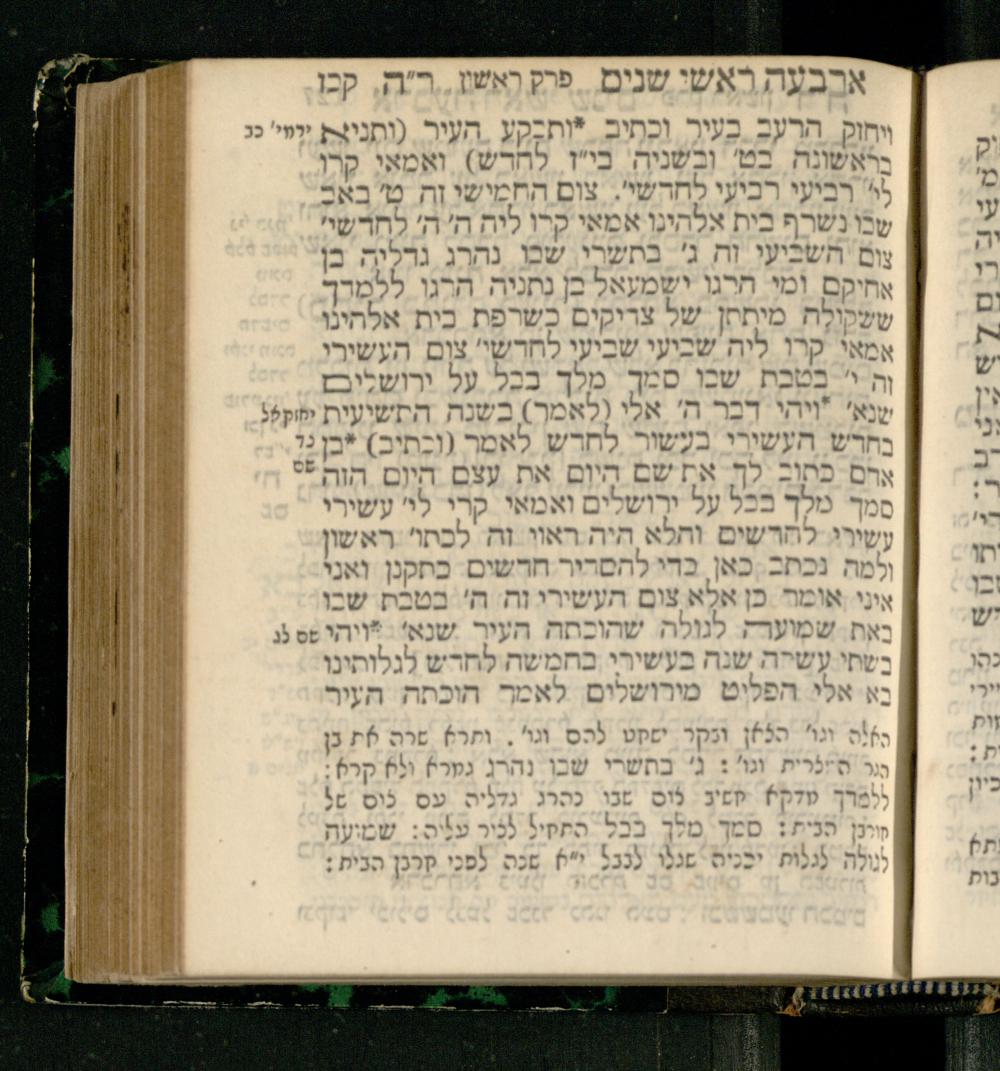 ארבעה ראשי שנים פרק ראשון ר״ה קכז
ויחזק הרעב בעיר וכתיב *ותבקע העיר (ותניא
ירמי׳ כב
בראשונה בט׳ ובשניה בי״ז לחדש) ואמאי קרו
לי׳ רביעי רביעי לחדשי׳. צום החמישי זה ט׳ באב
שבו נשרף בית אלהינו אמאי קרו ליה ה׳ ה׳ לחדשי׳
צום השביעי זה ג׳ בתשרי שבו נהרג גדליה בן
אחיקם ומי הרגו ישמעאל בן נתניה הרגו ללמדך
ששקולה מיתתן של צדיקים כשרפת בית אלהינו
אמאי קרו ליה שביעי שביעי לחדשי׳ צום העשירי
זה י׳ בטבת שבו סמך מלך בבל על ירושלים
שנא׳ *ויהי דבר ה׳ אלי (לאמר) בשנה התשיעית
יחזקאל
בחדש העשירי בעשור לחדש לאמר (וכתיב) *בן
כד
אדם כתוב לך את שם היום את עצם היום הזה
שם
סמך מלך בבל על ירושלים ואמאי קרי לי׳ עשירי
עשירי לחדשים והלא היה ראוי זה לכתו׳ ראשון
ולמה נכתב כאן כדי להסדיר חדשים כתקנן ואני
איני אומר כן אלא צום העשירי זה ה׳ בטבת שבו
באת שמועה לגולה שהוכתה העיר שנא׳ *ויהי
שם לג
בשתי עשרה שנה בעשירי בחמשה לחדש לגלותינו
בא אלי הפליט מירושלים לאמר הוכתה העיר
האלה וגו׳ הלאן ובקר ישחט להם וגו׳. ותרא שרה את בן
הגר המצרית וגו׳: ג׳ בתשרי שבו נהרג גמרא ולא קרא:
ללמדך מדקא חשיב צום שבו נהרג גדליה עם צום של
חורבן הבית: סמך מלך בבל התחיל לצור עליה: שמועה
לגולה לגלות יכניה שגלו לבבל י״א שנה לפני חרבן הבית: